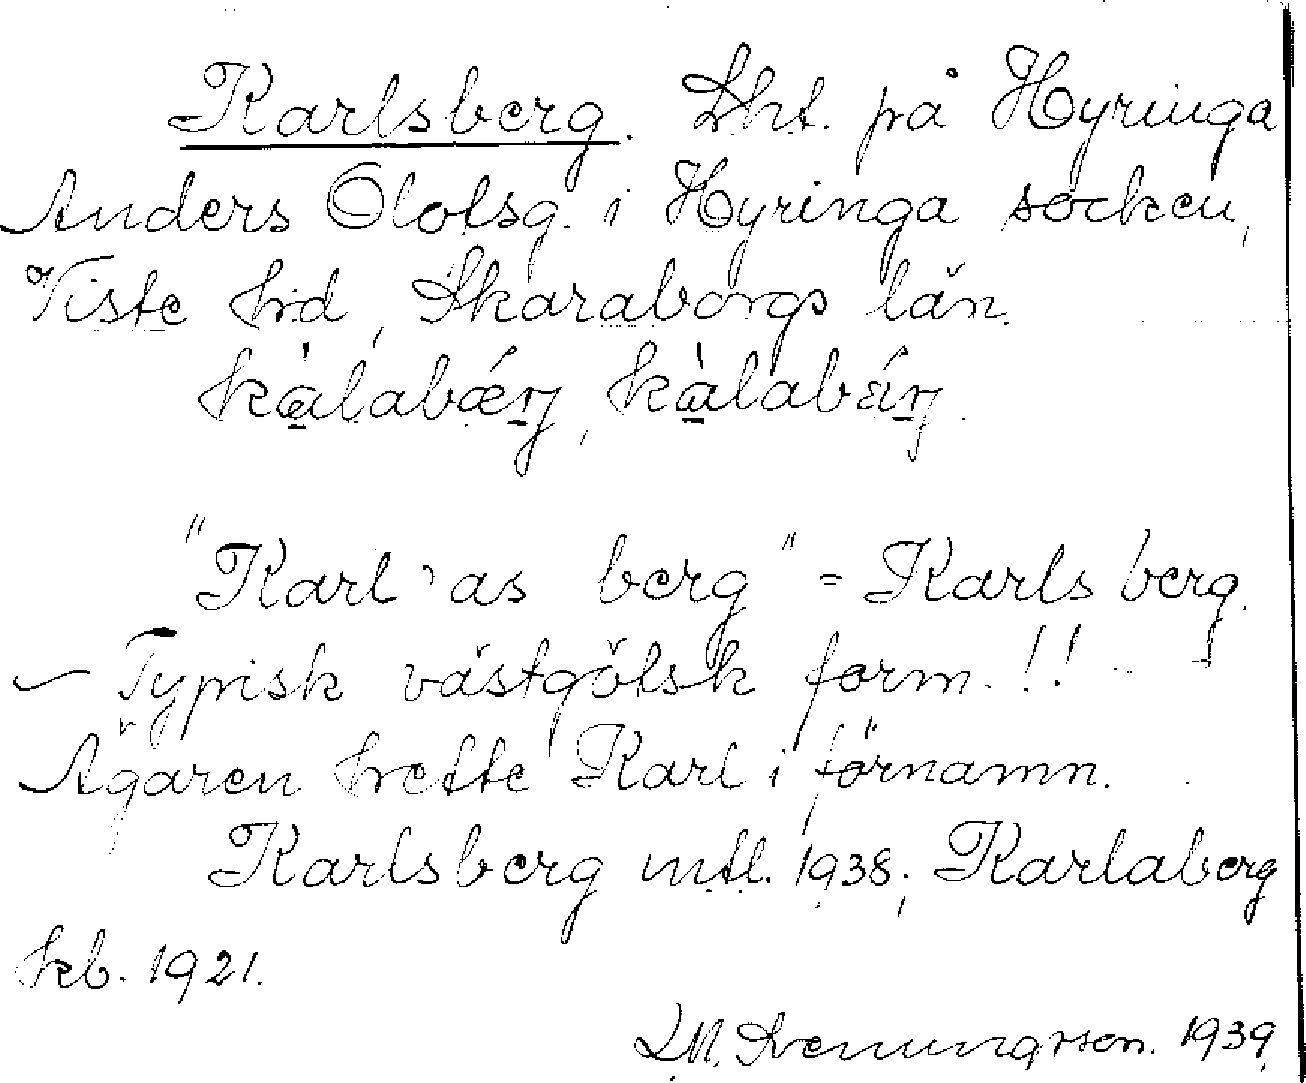 Karlsberg. Lht. på Hyringa
Anders Olofsg. i Hyringa socken,
Viste hd, Skaraborgs län.
kàlabǽrj, kàlabárj.
"Karl'as berg" = Karlsberg.
– Typisk västgötsk form.!!
Ägaren hette Karl i förnamn.
Karlsberg mtl. 1938; Karlaberg
kb. 1921.
1939